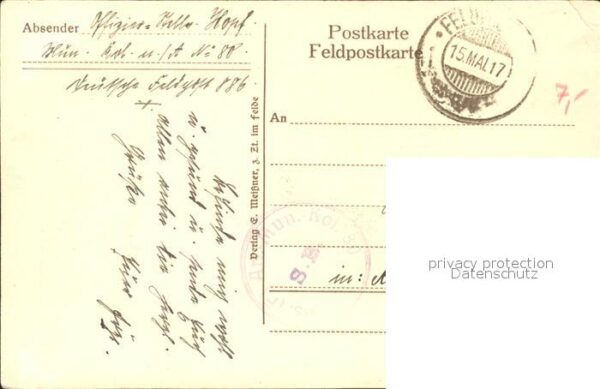 Absender Offizier-Stellv. Hopf.
Mun. Kol. u./A No 80
Deutsche Feldpost 886.
Befinde mich wohl
u. gesund u. sende Euch
allen
Grüße Euer
Verlag E. Meißner, z. Zt. im Felde
Postkarte
Feldpostkarte
15.MAI.17
7,-
An
Mun.-Kol. 80
S. B.
in:
privacy protection
Datenschutz